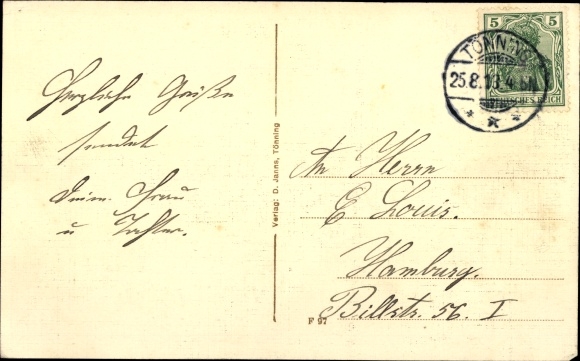 Herzliche Grüße
sendet
Deine Frau
u Tochter.
Verlag: D. Janns, Tönning
F 97
5 5
DEUTSCHES REICH
TÖNNING
25.8.10. 4-5N
An Herrn
E Louis.
Hamburg.
Billstr. 56. I